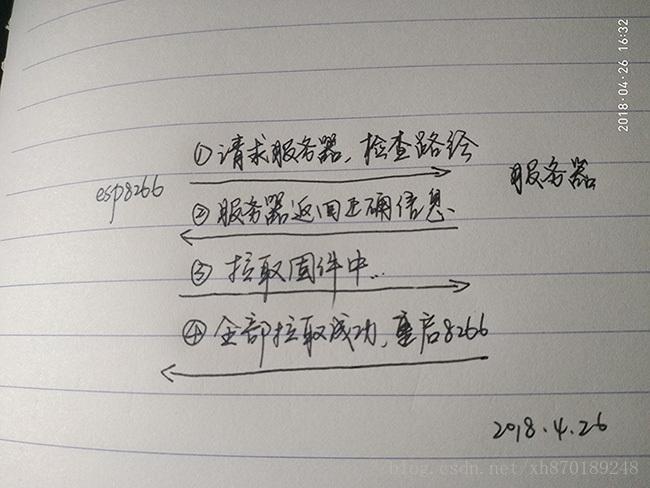 2018-04-26 16:32
①请求服务器，检查路径
esp8266
服务器
②服务器返回正确信息.
③ 拉取固件中...
④全部拉取成功，重启8266
2018.4.26
blog.csdn.net/xh870189248